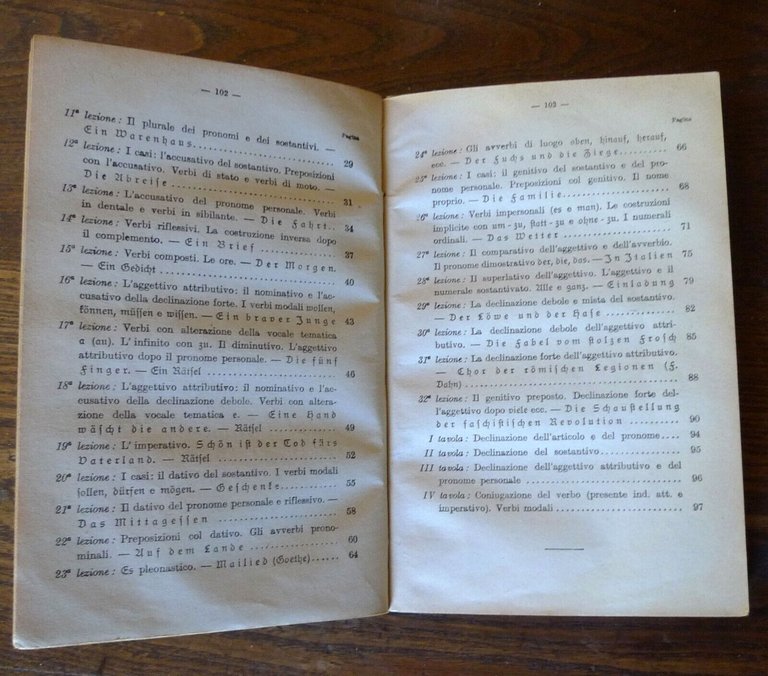 — 102 —
Pagina
11ª lezione: Il plurale dei pronomi e dei sostantivi. —
Ein Warenhaus. .................... 29
12ª lezione: I casi: l'accusativo del sostantivo. Preposizioni
con l'accusativo. Verbi di stato e verbi di moto. —
Die Abreise .................... 31
13ª lezione: L'accusativo del pronome personale. Verbi
in dentale e verbi in sibilante. — Die Fahrt.. 34
14ª lezione: Verbi riflessivi. La costruzione inversa dopo
il complemento. — Ein Brief ............ 37
15ª lezione: Verbi composti. Le ore. — Der Morgen.
— Ein Gedicht .................... 40
16ª lezione: L'aggettivo attributivo: il nominativo e l'ac-
cusativo della declinazione forte. I verbi modali wollen,
können, müssen e wissen. — Ein braver Junge 43
17ª lezione: Verbi con alterazione della vocale tematica
a (au). L'infinito con zu. Il diminutivo. L'aggettivo
attributivo dopo il pronome personale. — Die fünf
Finger. — Ein Rätsel .................... 46
18ª lezione: L'aggettivo attributivo: il nominativo e l'ac-
cusativo della declinazione debole. Verbi con alte-
razione della vocale tematica e. — Eine Hand
wäscht die andere. — Rätsel ............ 49
19ª lezione: L'imperativo. Schön ist der Tod fürs
Vaterland. — Rätsel .................... 52
20ª lezione: I casi: il dativo del sostantivo. I verbi modali
sollen, dürfen e mögen. — Geschenke...... 55
21ª lezione: Il dativo del pronome personale e riflessivo. —
Das Mittagessen .................... 58
22ª lezione: Preposizioni col dativo. Gli avverbi prono-
minali. — Auf dem Lande ............ 60
23ª lezione: Es pleonastico. — Mailied (Goethe)...... 64
— 103 —
Pagina
24ª lezione: Gli avverbi di luogo oben, hinauf, herauf,
ecc. — Der Fuchs und die Ziege. ........ 66
25ª lezione: I casi: il genitivo del sostantivo e del pro-
nome personale. Preposizioni col genitivo. Il nome
proprio. — Die Familie. .................... 68
26ª lezione: Verbi impersonali (es e man). Le costruzioni
implicite con um - zu, statt - zu e ohne - zu. I numerali
ordinali. — Das Wetter .................... 71
27ª lezione: Il comparativo dell'aggettivo e dell'avverbio.
Il pronome dimostrativo der, die, das. — In Italien 75
28ª lezione: Il superlativo dell'aggettivo. L'aggettivo e il
numerale sostantivato. Alle e ganz. — Einladung 79
29ª lezione: La declinazione debole e mista del sostantivo.
— Der Löwe und der Hase. ............ 82
30ª lezione: La declinazione debole dell'aggettivo attri-
butivo. — Die Fabel vom stolzen Frosch 85
31ª lezione: La declinazione forte dell'aggettivo attributivo.
— Chor der römischen Legionen (F.
Dahn) .................... 88
32ª lezione: Il genitivo preposto. Declinazione forte del-
l'aggettivo dopo viele ecc. — Die Schaustellung
der faschistischen Revolution ........ 90
I tavola: Declinazione dell'articolo e del pronome .... 94
II tavola: Declinazione del sostantivo ............ 95
III tavola: Declinazione dell'aggettivo attributivo e del
pronome personale .................... 96
IV tavola: Coniugazione del verbo (presente ind. att. e
imperativo). Verbi modali .................... 97